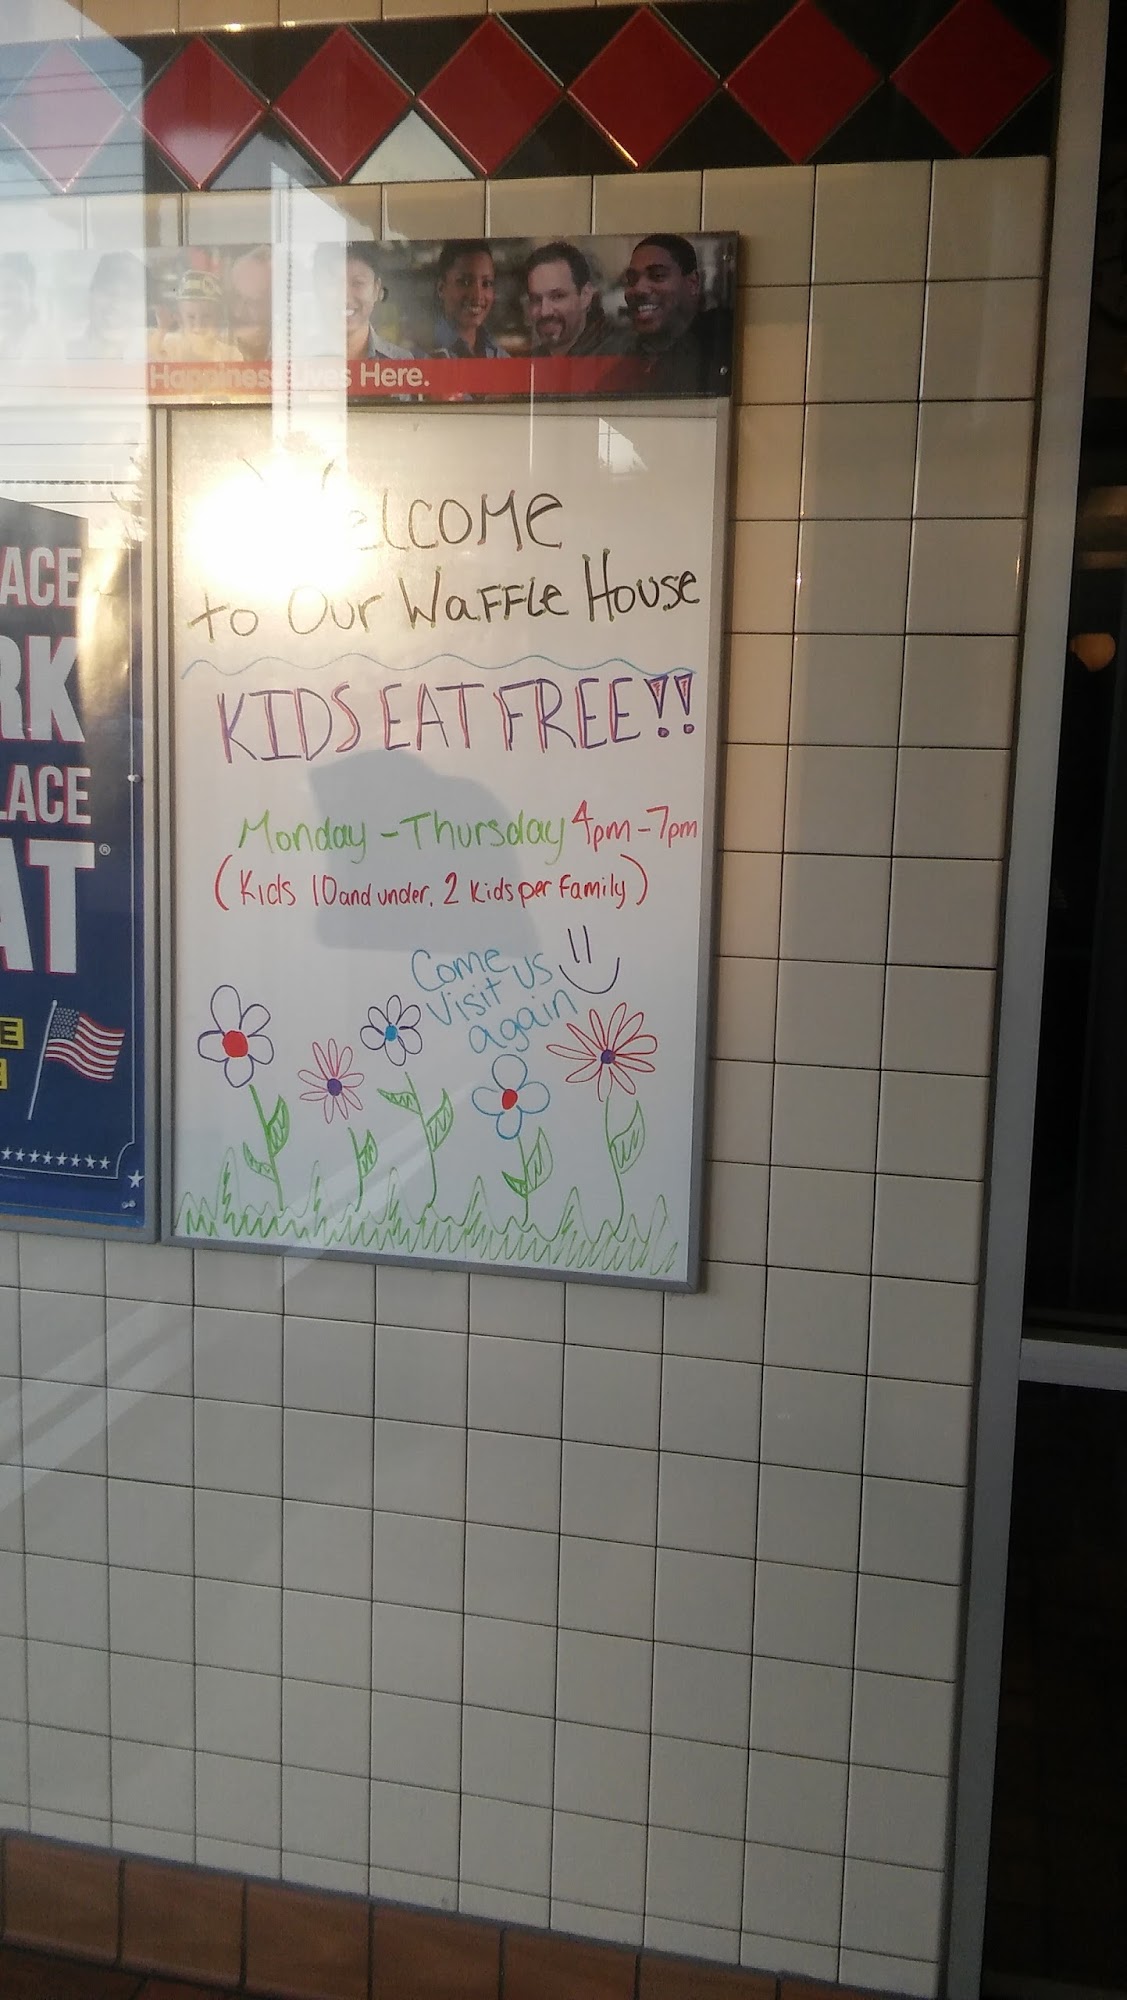 Happiness Lives Here.
Welcome
to Our Waffle House
KIDS EAT FREE!!
Monday - Thursday 4pm - 7pm
(Kids 10 and under. 2 Kids per Family)
Come us
visit
again
ACE
RK
LACE
AT®
E